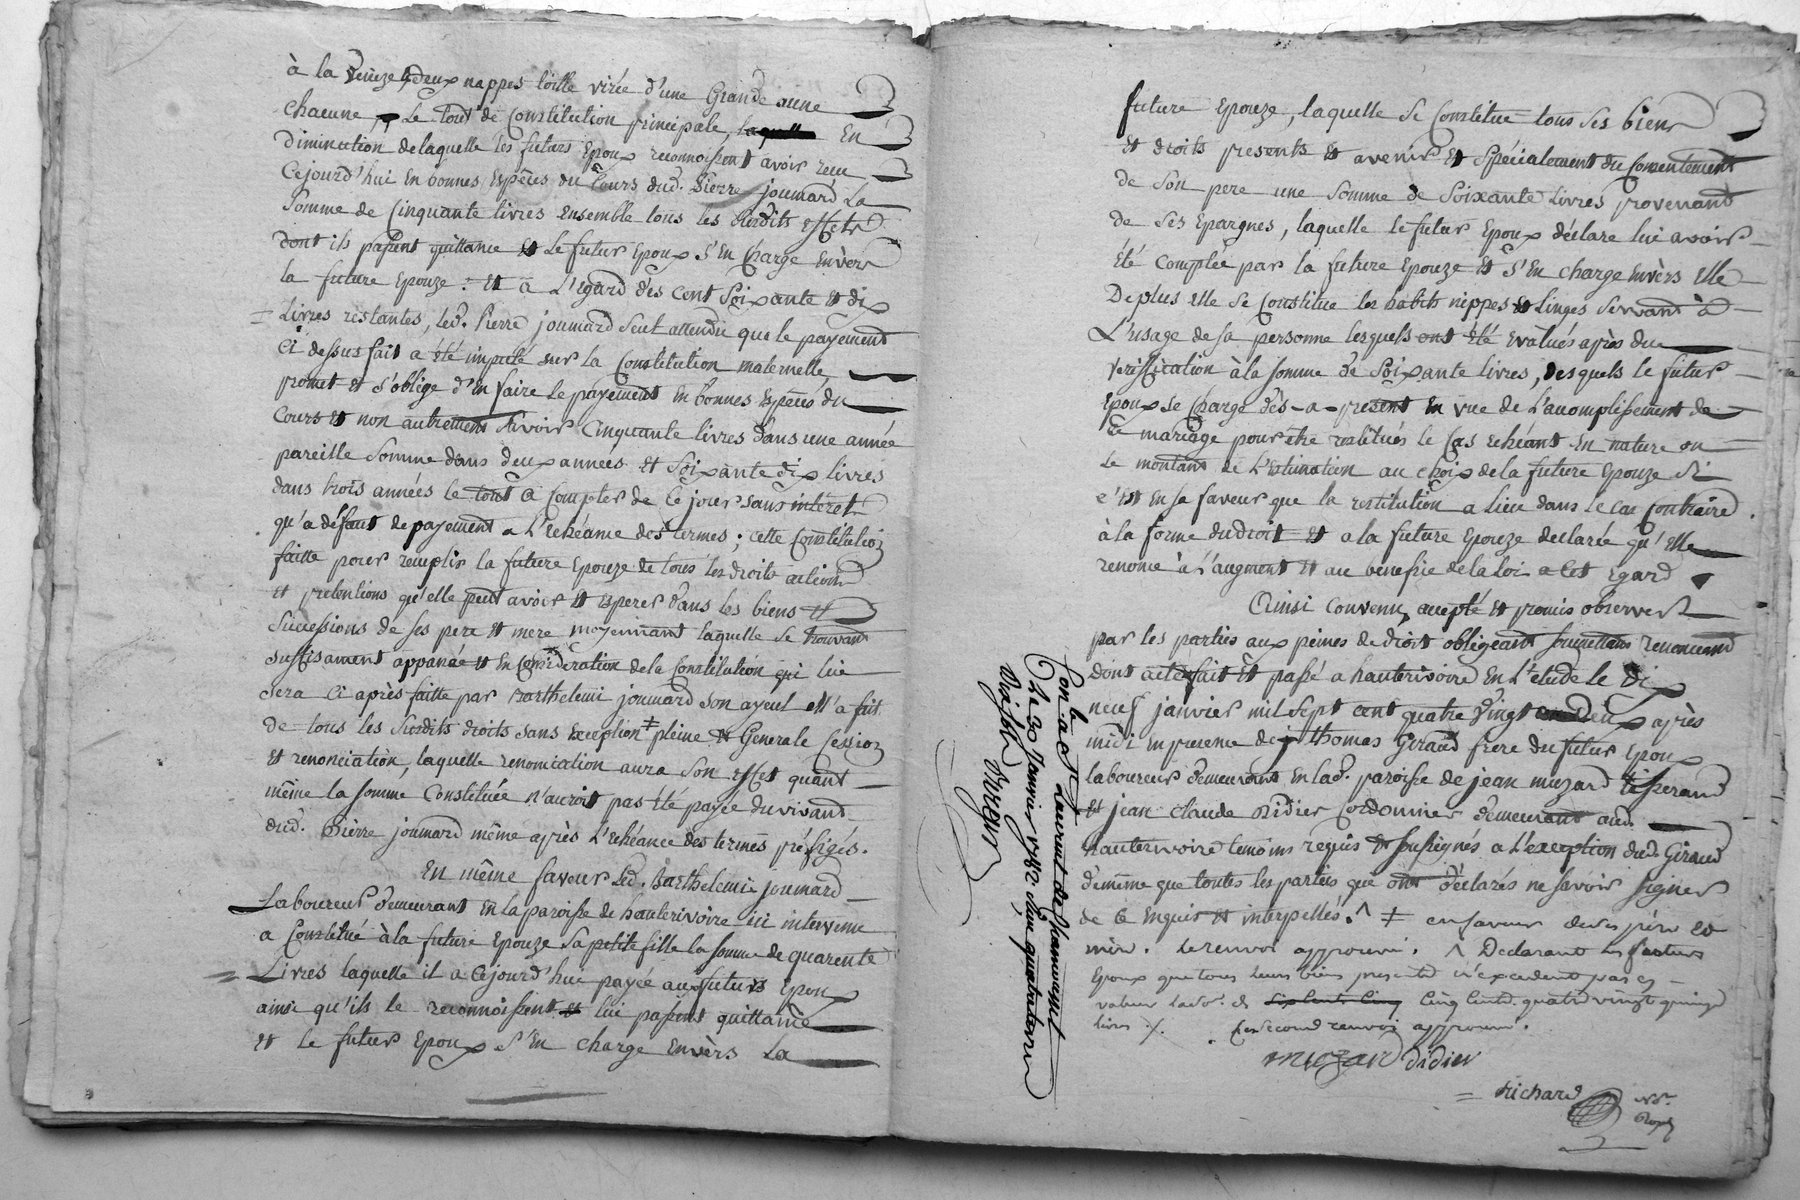 à la Venize, deux nappes toille virée d'une Grande aune
chacune, Le tout de Constitution principale, En
diminution delaquelle les futurs Epoux reconnoissent avoir recu
Cejourd'hui En bonnes Espèces du Cours dud. Pierre joumard La
Somme de Cinquante livres Ensemble tous les susdits effets
dont ils passent quittance et Le futur Epoux S'En Charge Envèrs
la future Epouze : et a L'égard des cent Soixante et dix
Livres restantes, led. Pierre joumard Seul attendu que le payement
Ci dessus fait a été imputé sur la Constitution maternelle,
promet et s'oblige d'En faire Le payement En bonnes Espèces du
Cours et non autrement savoir Cinquante livres dans une année
pareille Somme dans deux années et Soixante dix livres
dans trois années le tout a Compter de Ce jour sans interet
qu'a défaut de payement a L'echéance des termes ; cette Constitution
faitte pour remplir la future Epouze de tous les droits actions
et pretentions qu'elle peut avoir et Esperer dans les biens et
Successions de ses pere et mere moyennant laquelle se trouvant
suffisament appanée et En Consideration dela Constitution qui lui
sera Ci après faitte par Barthelemi joumard son ayeul Ell'a fait
de tous les Susdits droits sans Exception ‡ pleine et Generale Cession
et renonciation, laquelle renonciation aura Son effet quant
même la somme Constituée n'auroit pas été payée du vivant
dud. Pierre joumard même après L'echéance des termes préfigés.
En même faveur Led. Barthelemi joumard
Laboureur demeurant En la paroisse de hauterivoire ici intervenu
a Constitué à la future Epouze sa petite fille la somme de quarente
Livres laquelle il a Cejourd'hui payée aux futurs Epoux
ainsi qu'ils le reconnoissent et lui passent quittance
et le futur Epoux S'En charge Envèrs La
future Epouze, laquelle se Constitue tous ses biens
et droits presents et avenir et Spécialement du Consentement
de Son pere une Somme de Soixante Livres provenant
de Ses Epargnes, laquelle le futur Epoux déclare lui avoir
été Comptée par la future Epouze et S'En charge Envèrs Elle
De plus Elle se Constitue les habits nippes et linges Servant à
L'usage de sa personne lesquels ont été évalués après due
verification à la somme de Soixante livres, desquels le futur
Epoux se Charge dès-a-present En vue de L'accomplissement de
Ce mariage pour être restitués le Cas echéant En nature ou
Le montant de L'estimation au choix de la future Epouze Si
c'Est En sa faveur que la restitution a lieu dans le cas Contraire
à la forme du droit et a la future Epouze declarée qu'Elle
renonce à l'augment et au benefice de la loi a Cet Egard
Ainsi convenu, accepté et promis observer
par les parties aux peines de droit obligeant soumettant renonceant
dont acte fait Et passé a hauterivoire En L'étude le dix
neuf janvier mil sept cent quatre vingt deux après
midi En presence de thomas Giraud frere du futur Epoux
laboureur demeurant En lad. paroisse de jean muzard tisserand
et jean claude Didier Cordonnier demeurant aud.
hauterivoire temoins requis et soussignés a L'exception dud. Giraud
de même que toutes les parties qui ont déclarés ne savoir signer
de Ce Enquis et interpellés. ^ ‡ en faveur de ses père et
mère. Le renvoi approuvé. ^ Declarant les futurs
Epoux que tous leurs biens presents n'excedent pas En
valeur la so. de Six Cent Cinq Cinq Cents quatre vingt quinze
livres ⁒ Ce second renvoi approuvé.
muzard didier
= Richard Not.
Royal
Con.lé a St Laurent de Chamousset
Le 30 Janvier 1782. Reçu quatorze